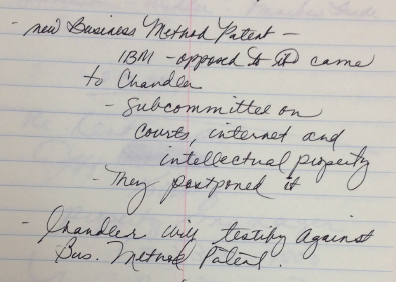 - new Business Method Patent -
IBM - opposed to it came
to Chandler
- Subcommittee on
courts, internet and
intellectual property
- They postponed it
- Chandler will testify against
Bus. Method Patent.